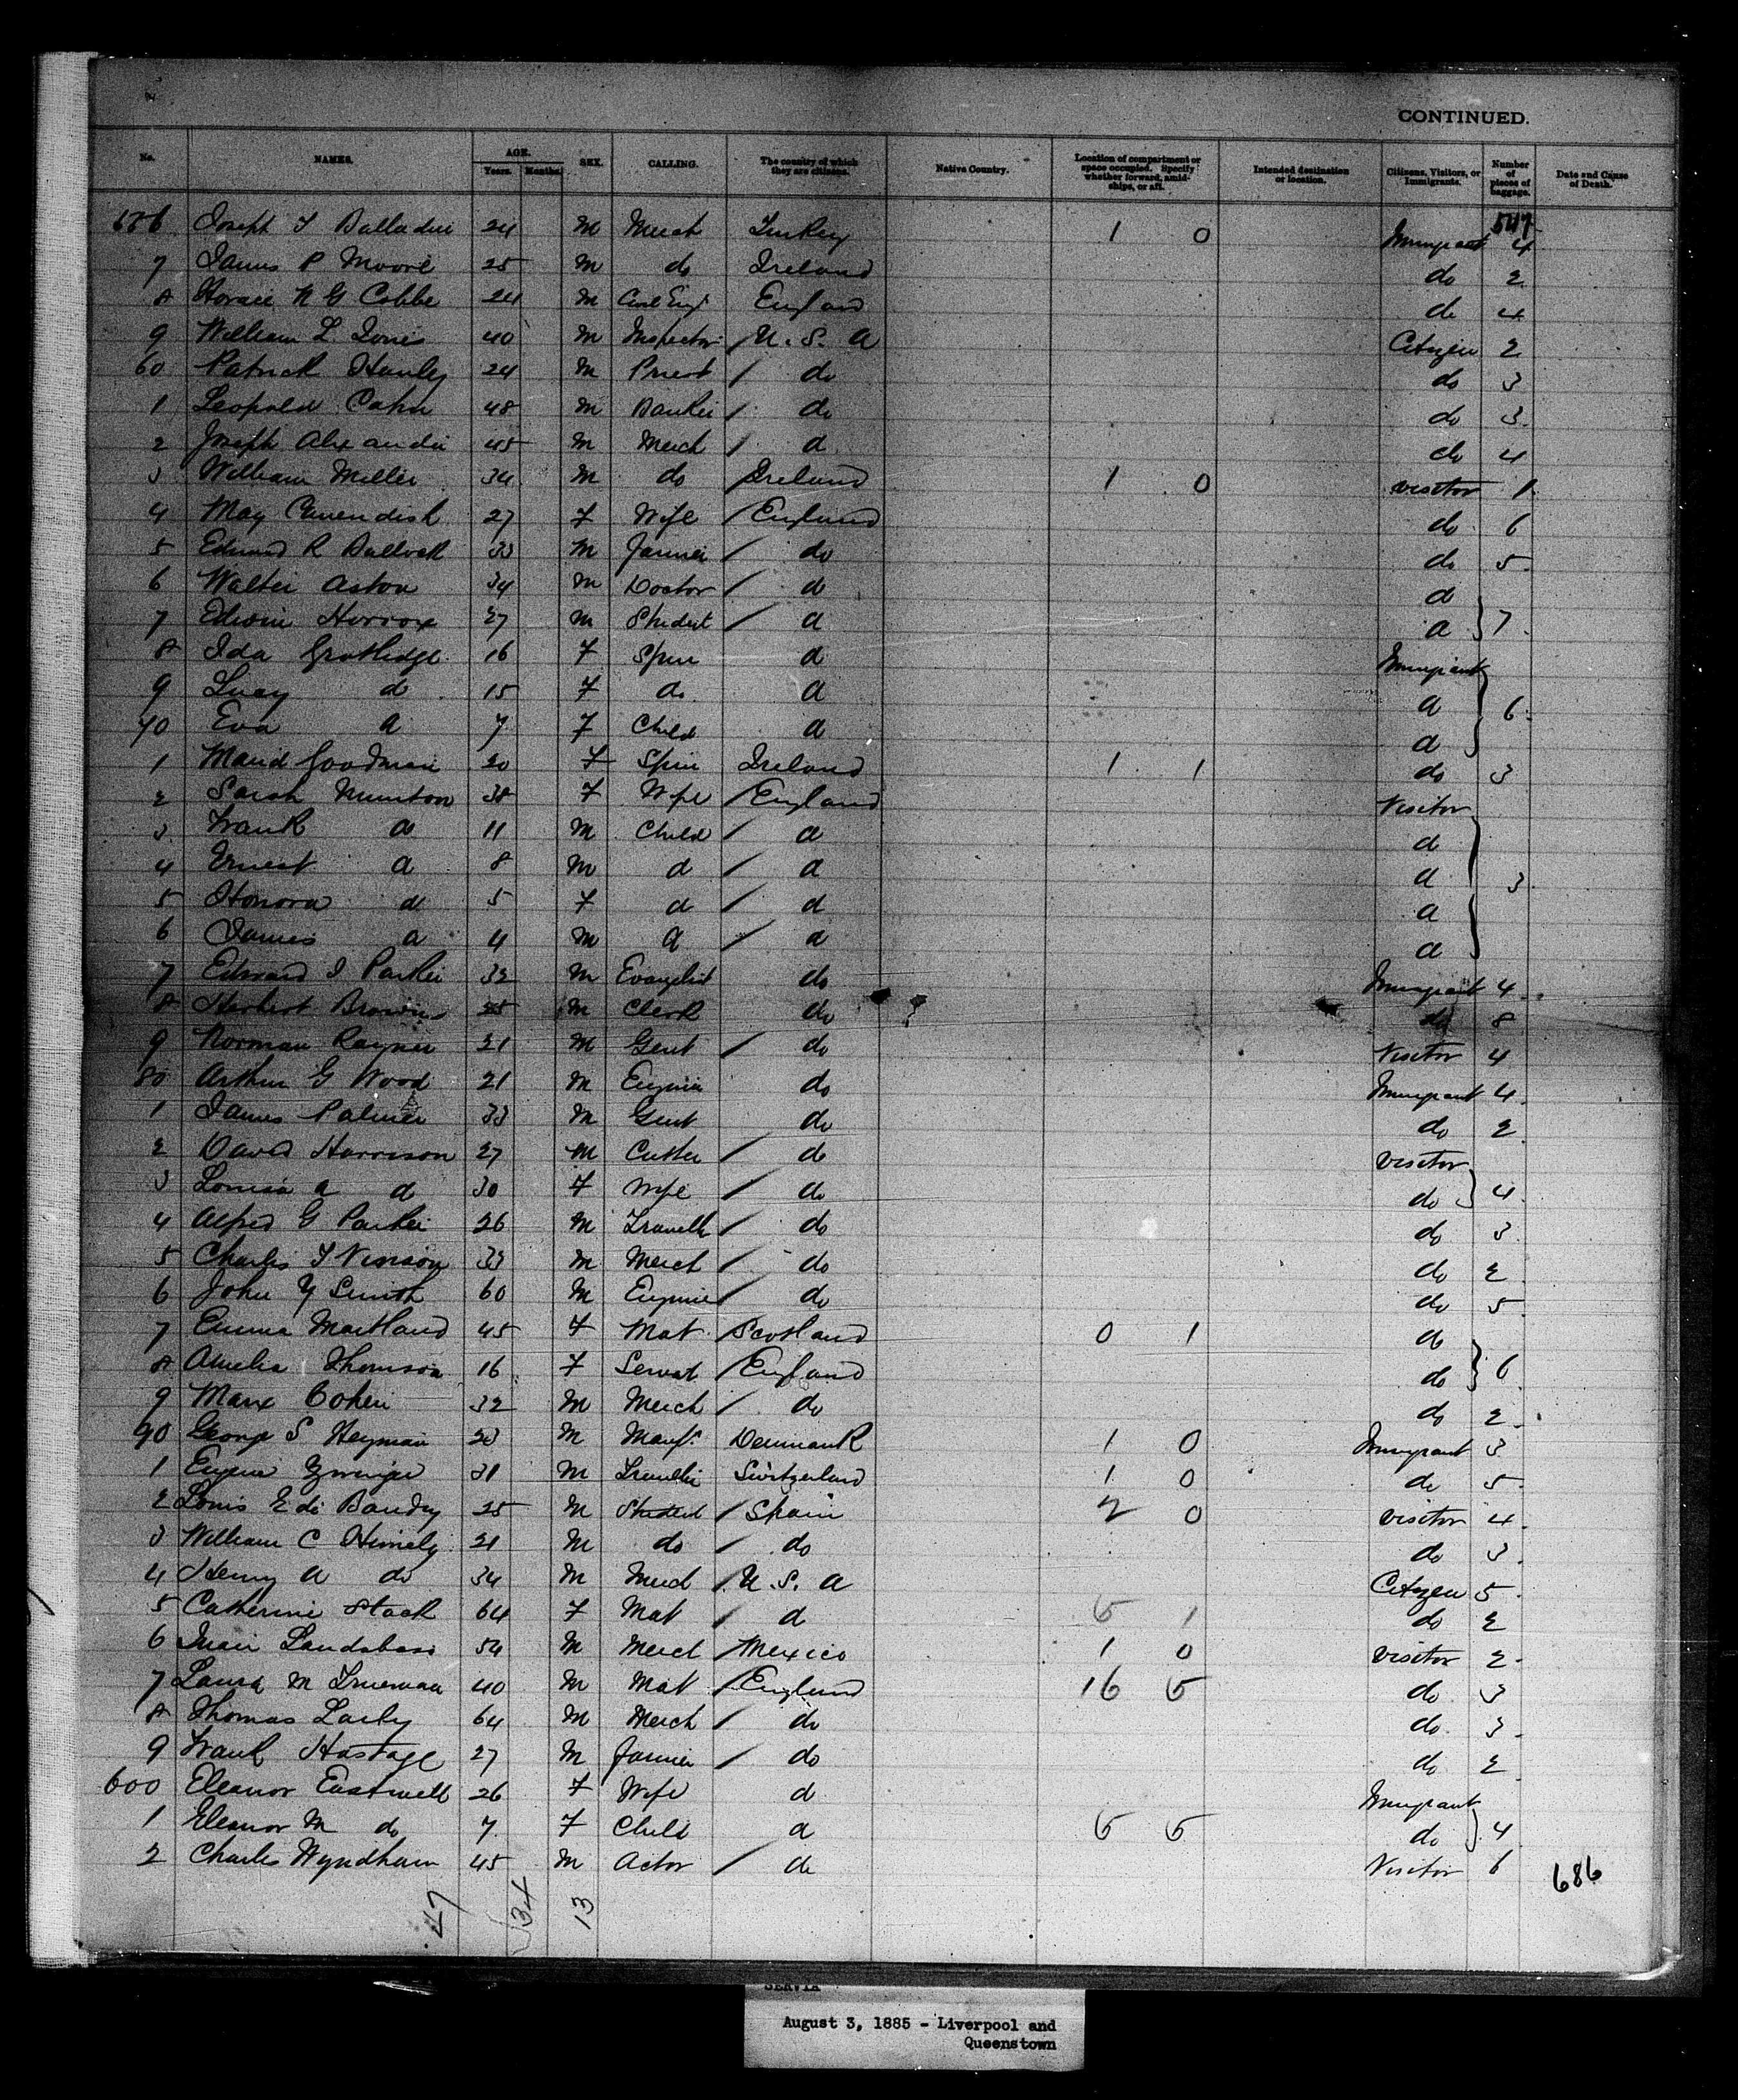 CONTINUED.
No. NAMES. AGE. Years. Months. SEX. CALLING. The country of which they are citizens. Native Country. Location of compartment or space occupied. Specify whether forward, amidships, or aft. Intended destination or location. Citizens, Visitors, or Immigrants. Number of pieces of baggage. Date and Cause of Death.
Joseph 24 M Merch Turkey 1 0 Immigrant 4
7 James P Moore 25 M do Ireland do 2
8 Horace N G Cobbe 24 M Civil Eng England do 4
9 William L Jones 40 M Inspector U.S.A Citizen 2
60 Patrick Hanly 24 M Priest do do 3
1 Leopold Cahn 48 M Banker do do 3
2 Joseph Alexander 45 M Merch d do 4
3 William Miller 34 M do Ireland 1 0 visitor 1
4 May Cavendish 27 F Wife England do 6
5 Edward R Bullock 33 M Farmer do do 5
6 Walter Aston 34 M Doctor d d
7 Edwin Horrox 27 M Student d d 7
8 Ida 16 F Spin d Immigrant
9 Lucy d 15 F do d d 6
70 Eva d 7 F Child d d
1 Maud Goodman 20 F Spin Ireland 1 1 do 3
2 Sarah Munton 38 F Wife England Visitor
3 Frank do 11 M Child d d
4 Ernest d 8 M d d d 3
5 Honora d 5 F d d d
6 James d 4 M d d d
7 Edward J Parker 32 M Evangelist do Immigrant 4
8 Herbert Brown 25 M Clerk do do 8
9 Norman Rayner 21 M Gent do Visitor 4
80 Arthur G Wood 21 M Engineer do Immigrant 4
1 James Palmer 33 M Gent do do 2
2 David Harrison 27 M Cutter do Visitor
3 Louisa A d 30 F Wife do do 4
4 Alfred G Parker 26 M Traveller do do 3
5 Charles 33 M Merch do do 2
6 John Y Smith 60 M Engineer do do 5
7 Emma Maitland 45 F Mat Scotland 0 1 do
8 Amelia Thomson 16 F Servat England do 6
9 Marx Cohen 32 M Merch do do 2
90 George S Heyman 23 M Manf. Denmark 1 0 Immigrant 3
1 Eugene 31 M Traveller Switzerland 1 0 do 5
2 Louis E de Bandy 25 M Student Spain 2 0 visitor 4
3 William C Himely 21 M do do do 3
4 Henry A do 34 M Merch U.S.A Citizen 5
5 Catherine Stack 64 F Mat d 0 1 do 2
6 54 M Merch Mexico 1 0 visitor 2
7 Laura M Trueman 40 M Mat England 16 5 do 3
8 Thomas 64 M Merch do do 3
9 Frank Hastage 27 M Farmer do do 2
600 Eleanor Eastwell 26 F Wife d Immigrant
1 Eleanor M do 7 F Child d do 4
2 Charles Wyndham 45 M Actor do Visitor 6
686
47 34 13
SERVIA
August 3, 1885 - Liverpool and
Queenstown